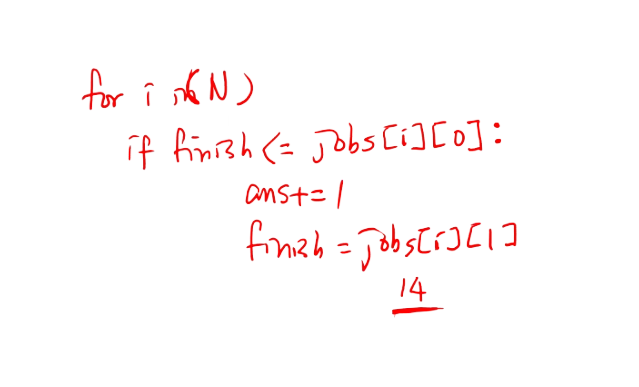 for i in(N)
if finish <= jobs[i][0]:
ans+=1
finish = jobs[i][1]
14